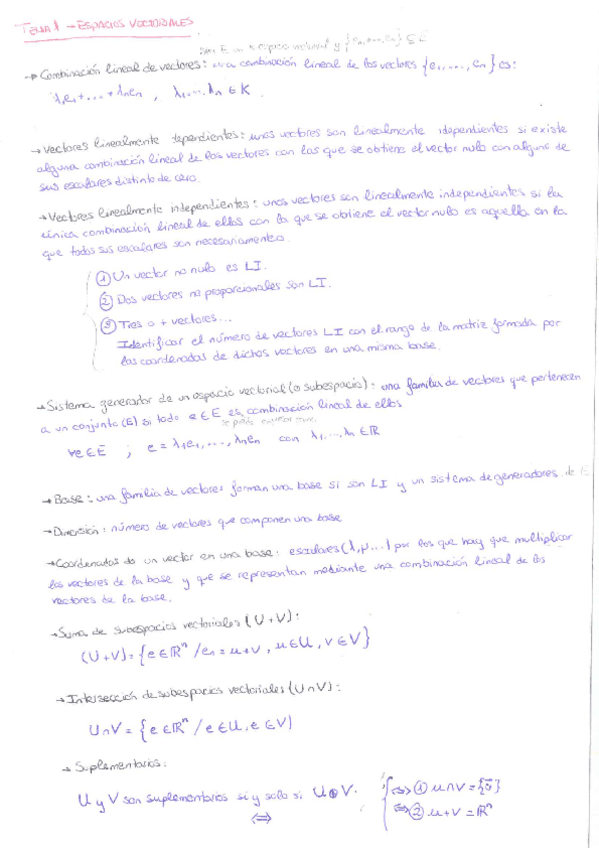 TEMA 1 - ESPACIOS VECTORIALES
Sea E un K espacio vectorial y {e1,...,en} ⊆ E
→ Combinación lineal de vectores: una combinación lineal de los vectores {e1,...,en} es:
λ1e1+...+λnen , λ1...λn ∈ K
→ Vectores linealmente dependientes: unos vectores son linealmente dependientes si existe
alguna combinación lineal de los vectores con las que se obtiene el vector nulo con alguno de
sus escalares distinto de cero.
→ Vectores linealmente independientes: unos vectores son linealmente independientes si la
única combinación lineal de ellos con la que se obtiene el vector nulo es aquella en la
que todos sus escalares son necesariamente 0.
① Un vector no nulo es LI.
② Dos vectores no proporcionales son LI.
③ Tres o + vectores...
Identificar el número de vectores LI con el rango de la matriz formada por
las coordenadas de dichos vectores en una misma base.
→ Sistema generador de un espacio vectorial (o subespacio): una familia de vectores que pertenecen
a un conjunto (E) si todo e ∈ E es combinación lineal de ellos
se puede expresar como
∀e ∈ E ; e = λ1e1,...,λnen con λ1,...,λn ∈ ℝ
→ Base: una familia de vectores forman una base si son LI y un sistema de generadores de E
→ Dimensión: número de vectores que componen una base
→ Coordenadas de un vector en una base: escalares (λ,μ...) por los que hay que multiplicar
los vectores de la base y que se representan mediante una combinación lineal de los
vectores de la base.
→ Suma de subespacios vectoriales (U+V):
(U+V)= {e ∈ ℝⁿ / e1 = u+v, u ∈ U, v ∈ V}
→ Intersección de subespacios vectoriales (U∩V):
U∩V = {e ∈ ℝⁿ / e ∈ U, e ∈ V}
→ Suplementarios:
U y V son suplementarios si y solo si U⊕V. ⟺ ① U∩V = {0̄}
⟺ ⟺ ② U+V = ℝⁿ